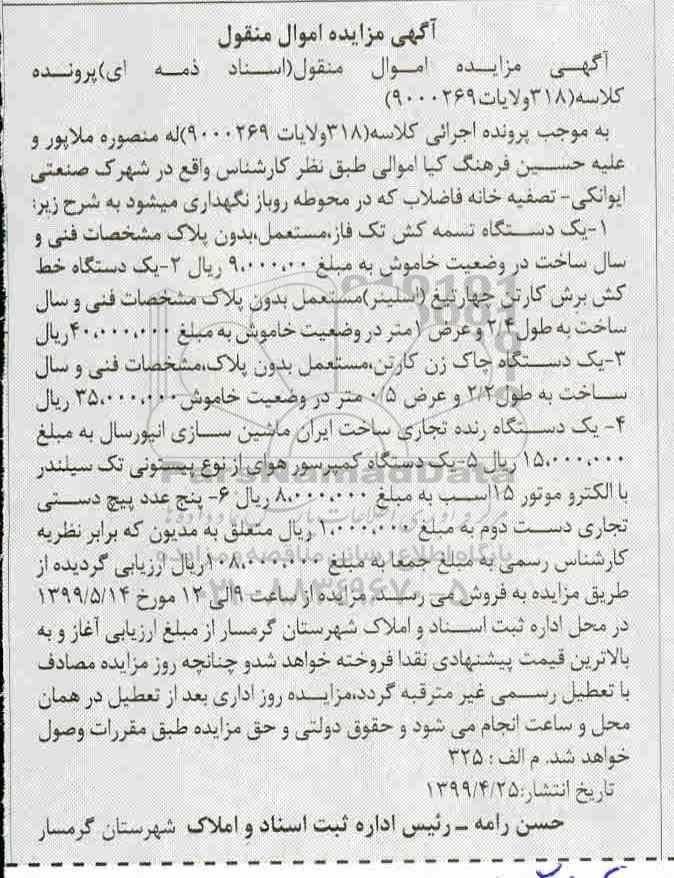 آگهی مزایده اموال منقول
آگهی مزایده اموال منقول(اسناد ذمه ای)پرونده
کلاسه(۳۱۸ولایات۹۰۰۰۲۶۹)
به موجب پرونده اجرائی کلاسه(۳۱۸ولایات ۹۰۰۰۲۶۹)له منصوره ملاپور و
علیه حسین فرهنگ کیا اموالی طبق نظر کارشناس واقع در شهرک صنعتی
ایوانکی- تصفیه خانه فاضلاب که در محوطه روباز نگهداری میشود به شرح زیر:
۱-یک دستگاه تسمه کش تک فاز،مستعمل،بدون پلاک مشخصات فنی و
سال ساخت در وضعیت خاموش به مبلغ ۹،۰۰۰،۰۰ ریال ۲-یک دستگاه خط
کش برش کارتن چهارتیغ (اسلیتر)مستعمل بدون پلاک مشخصات فنی و سال
ساخت به طول۲/۴ و عرض ۱متر در وضعیت خاموش به مبلغ ۴۰،۰۰۰،۰۰۰ریال
۳-یک دستگاه چاک زن کارتن،مستعمل بدون پلاک،مشخصات فنی و سال
ساخت به طول۲/۲ و عرض ۰/۵ متر در وضعیت خاموش۳۵،۰۰۰،۰۰۰ ریال
۴- یک دستگاه رنده تجاری ساخت ایران ماشین سازی انپورسال به مبلغ
۱۵،۰۰۰،۰۰۰ ریال ۵-یک دستگاه کمپرسور هوای از نوع پیستونی تک سیلندر
با الکترو موتور ۱۵اسب به مبلغ ۸،۰۰۰،۰۰۰ ریال ۶- پنج عدد پیچ دستی
تجاری دست دوم به مبلغ ۱،۰۰۰،۰۰۰ریال متعلق به مدیون که برابر نظریه
کارشناس رسمی به مبلغ جمعا به مبلغ ۱۰۸،۰۰۰،۰۰۰ریال ارزیابی گردیده از
طریق مزایده به فروش می رسد. مزایده از ساعت ۹الی ۱۲ مورخ ۱۳۹۹/۵/۱۴
در محل اداره ثبت اسناد و املاک شهرستان گرمسار از مبلغ ارزیابی آغاز و به
بالاترین قیمت پیشنهادی نقدا فروخته خواهد شدو چنانچه روز مزایده مصادف
با تعطیل رسمی غیر مترقبه گردد،مزایده روز اداری بعد از تعطیل در همان
محل و ساعت انجام می شود و حقوق دولتی و حق مزایده طبق مقررات وصول
خواهد شد. م الف : ۳۲۵
تاریخ انتشار:۱۳۹۹/۴/۲۵
حسن رامه – رئیس اداره ثبت اسناد و املاک شهرستان گرمسار
ParsNamadData
پایگاه اطلاع رسانی مناقصه و مزایده